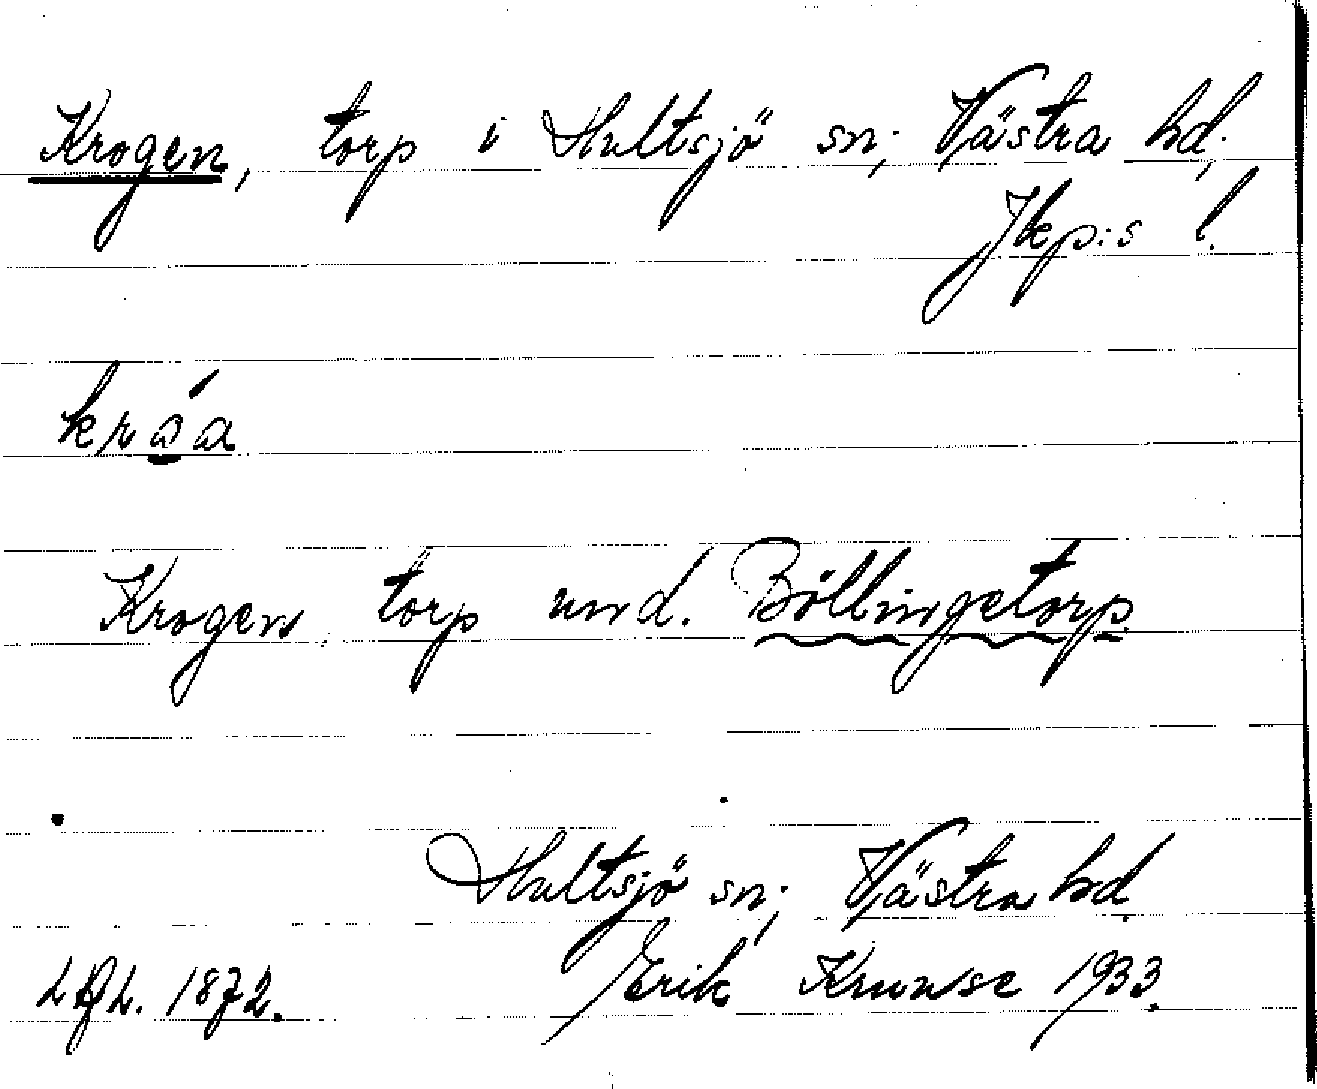 Krogen, torp i Hultsjö sn; Västra hd;
Jkp:s l.
kråa
Krogen torp und. Böllingetorp
Hultsjö sn; Västra hd.
1872. Erik Krunse 1933.